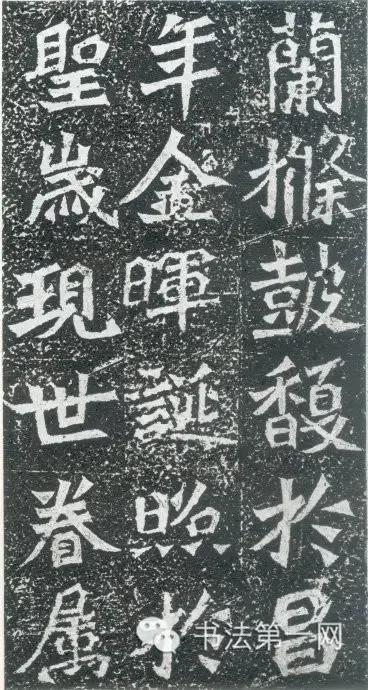 蘭樤皷馥於昌
年金暉誕照於
聖歳現世眷属
书法第一网